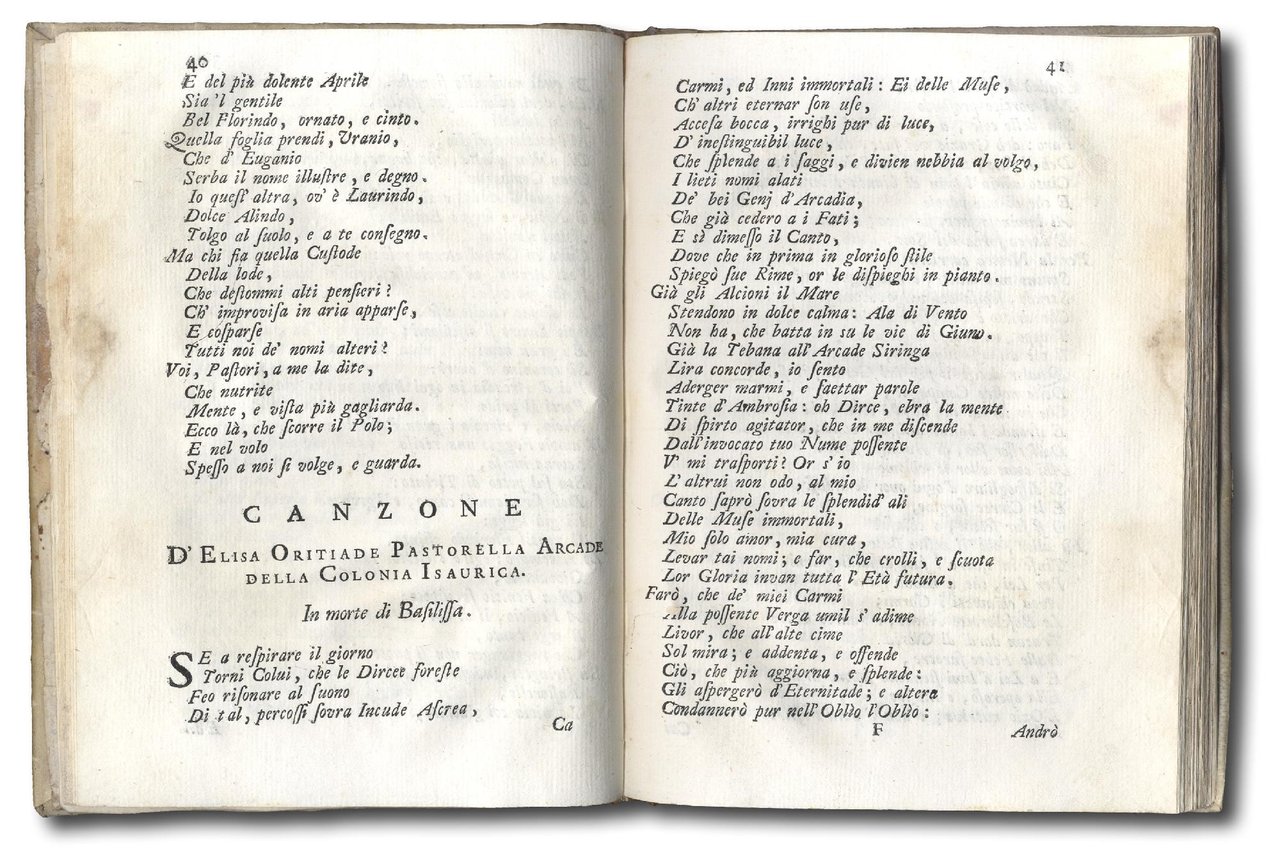 40
E del più dolente Aprile
Sia 'l gentile
Bel Florindo, ornato, e cinto.
Quella foglia prendi, Uranio,
Che d' Euganio
Serba il nome illuſtre, e degno.
Io queſt' altra, ov' è Laurindo,
Dolce Alindo,
Tolgo al ſuolo, e a te conſegno.
Ma chi fia quella Cuſtode
Della lode,
Che deſtommi alti penſieri?
Ch' improviſa in aria apparſe,
E coſparſe
Tutti noi de' nomi alteri?
Voi, Paſtori, a me la dite,
Che nutrite
Mente, e viſta più gagliarda.
Ecco là, che ſcorre il Polo;
E nel volo
Speſſo a noi ſi volge, e guarda.
CANZONE
D' ELISA ORITIADE PASTORELLA ARCADE
DELLA COLONIA ISAURICA.
In morte di Baſiliſſa.
SE a reſpirare il giorno
Torni Colui, che le Dircee foreſte
Feo riſonare al ſuono
Di tal, percoſſi ſovra Incude Aſcrea,
Ca
41
Carmi, ed Inni immortali: Ei delle Muſe,
Ch' altri eternar ſon uſe,
Acceſa bocca, irrighi pur di luce,
D' ineſtinguibil luce,
Che ſplende a i ſaggi, e divien nebbia al volgo,
I lieti nomi alati
De' bei Genj d' Arcadia,
Che già cedero a i Fati;
E sì dimeſſo il Canto,
Dove che in prima in glorioſo ſtile
Spiegò ſue Rime, or le diſpieghi in pianto.
Già gli Alcioni il Mare
Stendono in dolce calma: Ala di Vento
Non ha, che batta in su le vie di Giuno.
Già la Tebana all' Arcade Siringa
Lira concorde, io ſento
Aderger marmi, e ſaettar parole
Tinte d' Ambroſia: oh Dirce, ebra la mente
Di ſpirto agitator, che in me diſcende
Dall' invocato tuo Nume poſſente
V' mi traſporti? Or s' io
L' altrui non odo, al mio
Canto ſaprò ſovra le ſplendid' ali
Delle Muſe immortali,
Mio ſolo amor, mia cura,
Levar tai nomi; e far, che crolli, e ſcuota
Lor Gloria invan tutta l' Età futura.
Farò, che de' miei Carmi
Alla poſſente Verga umil s' adime
Livor, che all' alte cime
Sol mira; e addenta, e offende
Ciò, che più aggiorna, e ſplende:
Gli aſpergerò d' Eternitade; e altera
Condannerò pur nell' Oblìo l' Oblìo:
F
Andrò